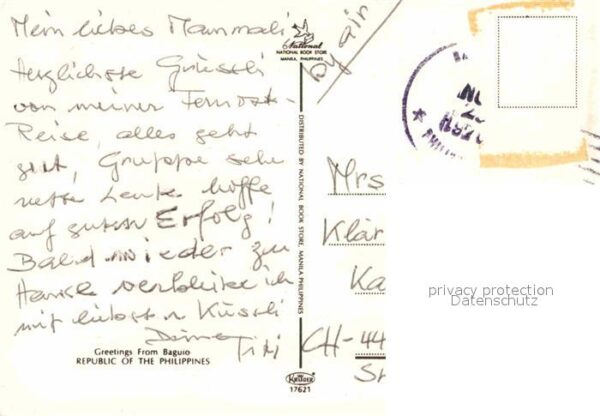 Mein liebes Mammali
Herzlichste Grüessli
von meiner Fernost-
Reise, alles geht
gut, Gruppe sehr
nette Leute hoffe
auf guten Erfolg!
Bald wieder zu
Hause verbleibe ich
mit liebsten Küssli
Titi
Greetings From Baguio
REPUBLIC OF THE PHILIPPINES
National
NATIONAL BOOK STORE
MANILA, PHILIPPINES
by air
DISTRIBUTED BY NATIONAL BOOK STORE, MANILA PHILIPPINES
KRÜGER
17621
Mrs
Klär
Ka
CH-44
privacy protection
Datenschutz